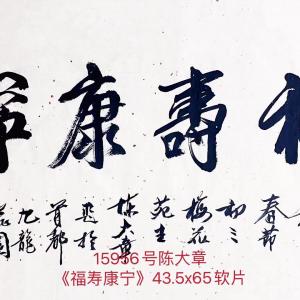 福壽康寧
春節
初三
梅花
苑主
陳大章
於
首都
九龍
花園
15936号陈大章
《福寿康宁》43.5x65软片